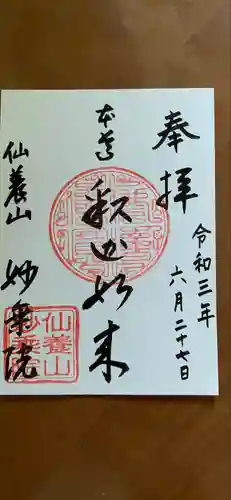 奉拝
令和三年
六月二十七日
本尊
釈迦如来
仙養山
妙乗院
仙養山
妙乗院